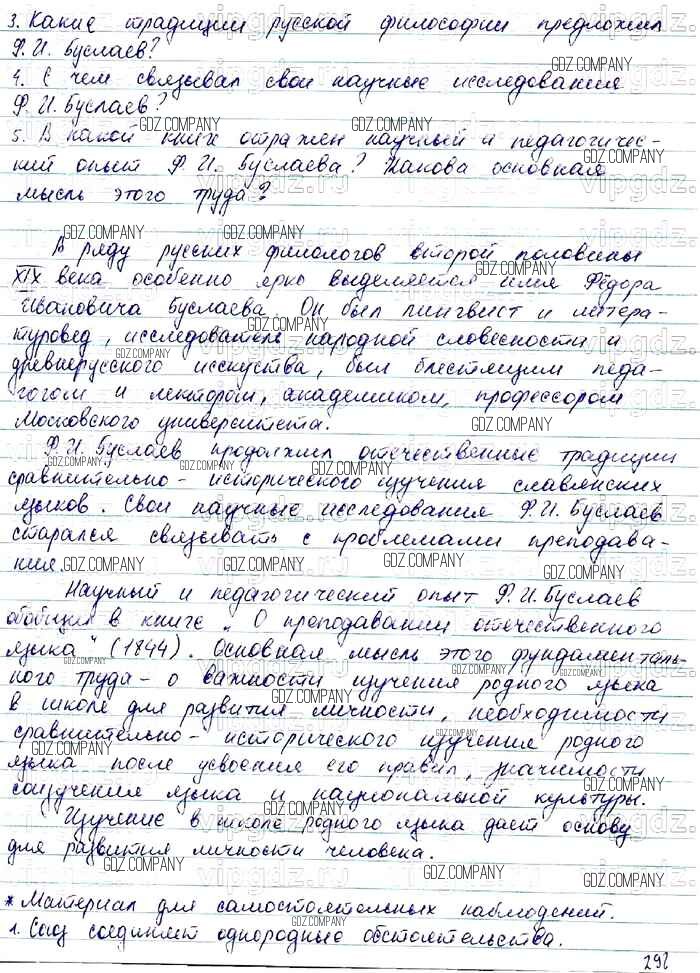 3. Какие традиции русской философии предложил
Ф. И. Буслаев?
4. С чем связывал свои научные исследования
Ф. И. Буслаев?
5. В какой книге отражен научный и педагогичес-
кий опыт Ф. И. Буслаева? Какова основная
мысль этого труда?
В ряду русских филологов второй половины
XIX века особенно ярко выделяется имя Фёдора
Ивановича Буслаева. Он был лингвист и литера-
туровед, исследователь народной словесности и
древнерусского исскуства, был блестящим педа-
гогом и лектором, академиком, профессором
Московского университета.
Ф. И. Буслаев продолжил отечественные традиции
сравнительно - исторического изучения славянских
языков. Свои научные исследования Ф. И. Буслаев
старался связывать с проблемами преподава-
ния.
Научный и педагогический опыт Ф. И. Буслаев
обобщил в книге „О преподавании отечественного
языка" (1844). Основная мысль этого фундаменталь-
ного труда - о важности изучения родного языка
в школе для развития личности, необходимости
сравнительно - исторического изучения родного
языка после усвоения его правил, значимости
соизучения языка и национальной культуры.
Изучение в школе родного языка даст основу
для развития личности человека.
* Материал для самостоятельных наблюдений.
1. Союз соединяет однородные обстоятельства.
292